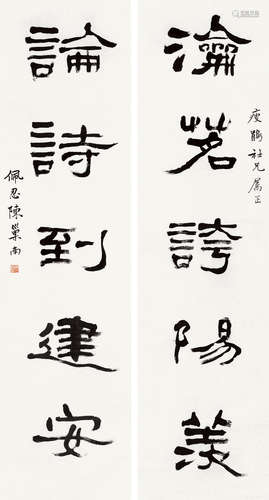 瀹茗誇陽羨
瘦鶴社兄屬正
論詩到建安
佩忍陳巢南